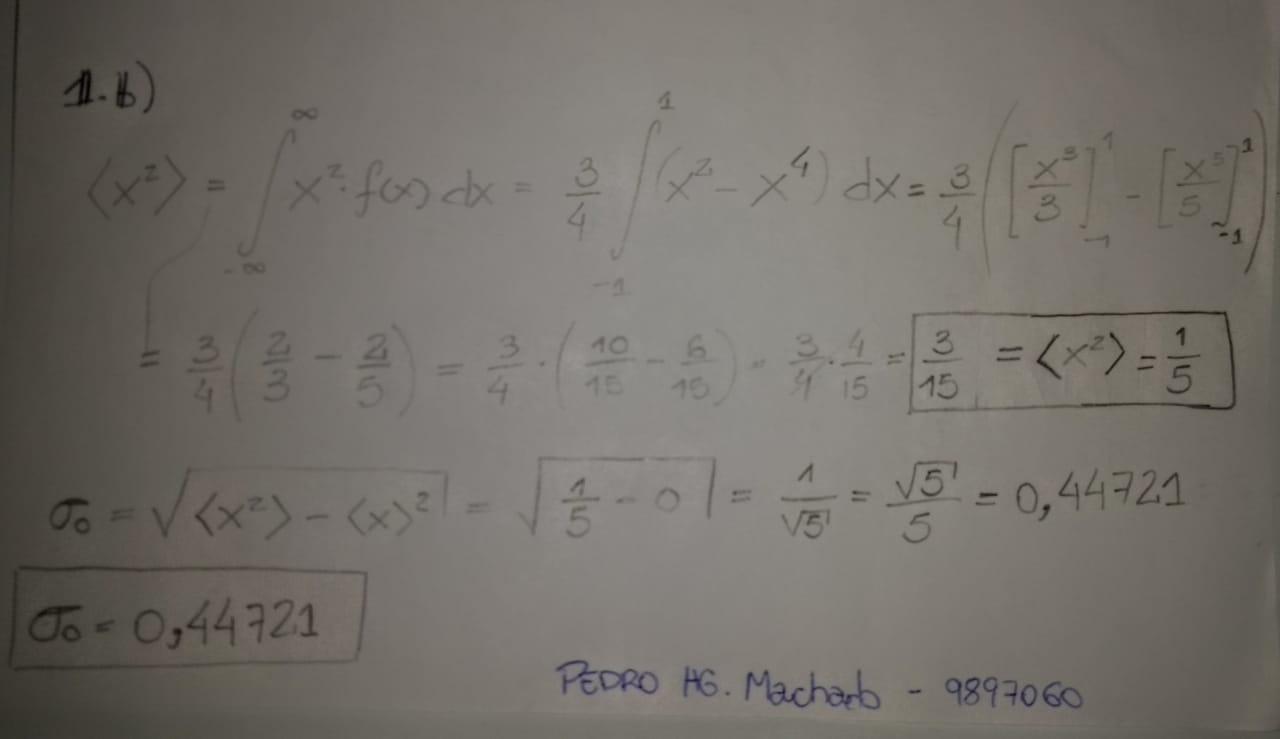 1.b)
⟨x²⟩ = ∫_{-∞}^{∞} x²·f(x) dx = 3/4 ∫_{-1}^{1} (x² - x⁴) dx = 3/4 ([x³/3]_{-1}^{1} - [x⁵/5]_{-1}^{1})
= 3/4 (2/3 - 2/5) = 3/4 · (10/15 - 6/15) = 3/4 · 4/15 = 3/15 = ⟨x²⟩ = 1/5
σ₀ = √(⟨x²⟩ - ⟨x⟩²) = √(1/5 - 0) = 1/√5 = √5/5 = 0,44721
σ₀ = 0,44721
PEDRO HG. Machado - 9897060